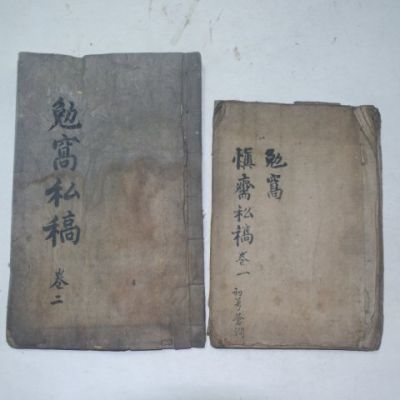 勉窩私稿
卷二
勉窩
愼齋私稿 卷一